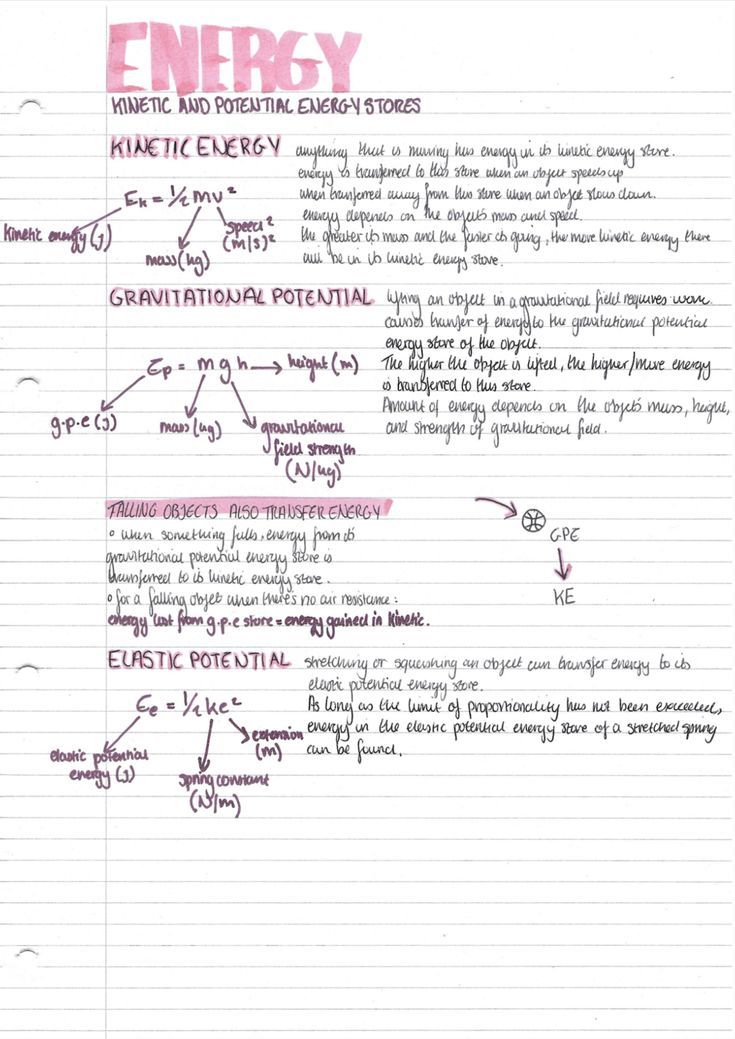 ENERGY
KINETIC AND POTENTIAL ENERGY STORES
KINETIC ENERGY
anything that is moving has energy in its kinetic energy store.
energy is transferred to this store when an object speeds up
when transferred away from this store when an object slows down.
energy depends on the object's mass and speed.
the greater its mass and the faster its going, the more kinetic energy there
will be in its kinetic energy store.
Ek = 1/2 mv²
kinetic energy (j)
mass (kg)
speed²
(m/s)²
GRAVITATIONAL POTENTIAL
lifting an object in a gravitational field requires work.
causes transfer of energy to the gravitational potential
energy store of the object.
The higher the object is lifted, the higher/more energy
is transferred to this store.
Amount of energy depends on the object's mass, height,
and strength of gravitational field.
Ep = m g h → height (m)
g.p.e (j)
mass (kg)
gravitational
field strength
(N/kg)
FALLING OBJECTS ALSO TRANSFER ENERGY
∘ when something falls, energy from its
gravitational potential energy store is
transferred to its kinetic energy store.
∘ for a falling objet when there's no air resistance:
energy lost from g.p.e store = energy gained in kinetic.
GPE
KE
ELASTIC POTENTIAL
stretching or squashing an object can transfer energy to its
elastic potential energy store.
As long as the limit of proportionality has not been exceeded,
energy in the elastic potential energy store of a stretched spring
can be found.
Ee = 1/2 ke²
elastic potential
energy (j)
extension
(m)
spring constant
(N/m)